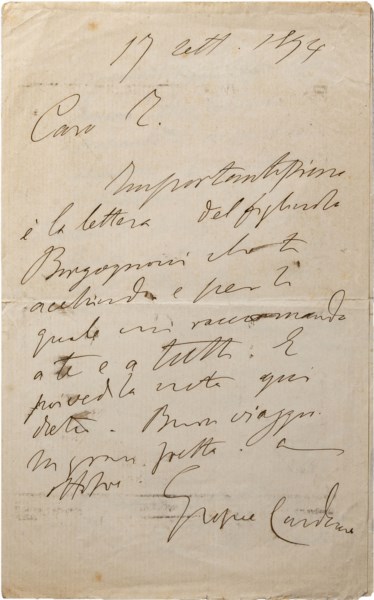 17 sett. 1894
Caro Z.
Importantissima
è la lettera del figliuolo
Borgognoni che ti
acchiudo e per la
quale mi raccomando
a te e a tutti. E
poi vedi la nota qui
dietro. Buon viaggio.
In gran fretta. a
ottobre.
Giosue Carducci